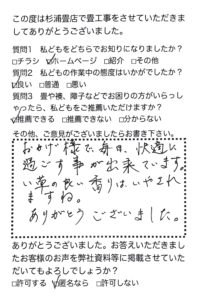 この度は杉浦畳店で畳工事をさせていただきま
してありがとうございました。
質問1 私どもをどちらでお知りになりましたか？
□チラシ ☑ホームページ □紹介 □その他
質問2 私どもの作業中の態度はいかがでしたか？
☑良い □普通 □悪い
質問3 畳や襖、障子などでお困りの方がいらっし
ゃったら、私どもをご推薦いただけますか？
☑推薦できる □推薦できない □分からない
その他、ご意見がございましたらお書き下さい。
おかげ様で、毎日、快適に
過ごす事が出来ています。
い草の良い香りは、いやされ
ますね。
ありがとうございました。
ありがとうございました。お答えいただきまし
たお客様のお声を弊社資料等に掲載させていた
だいてもよろしでしょうか？
□許可する ☑匿名なら □許可しない